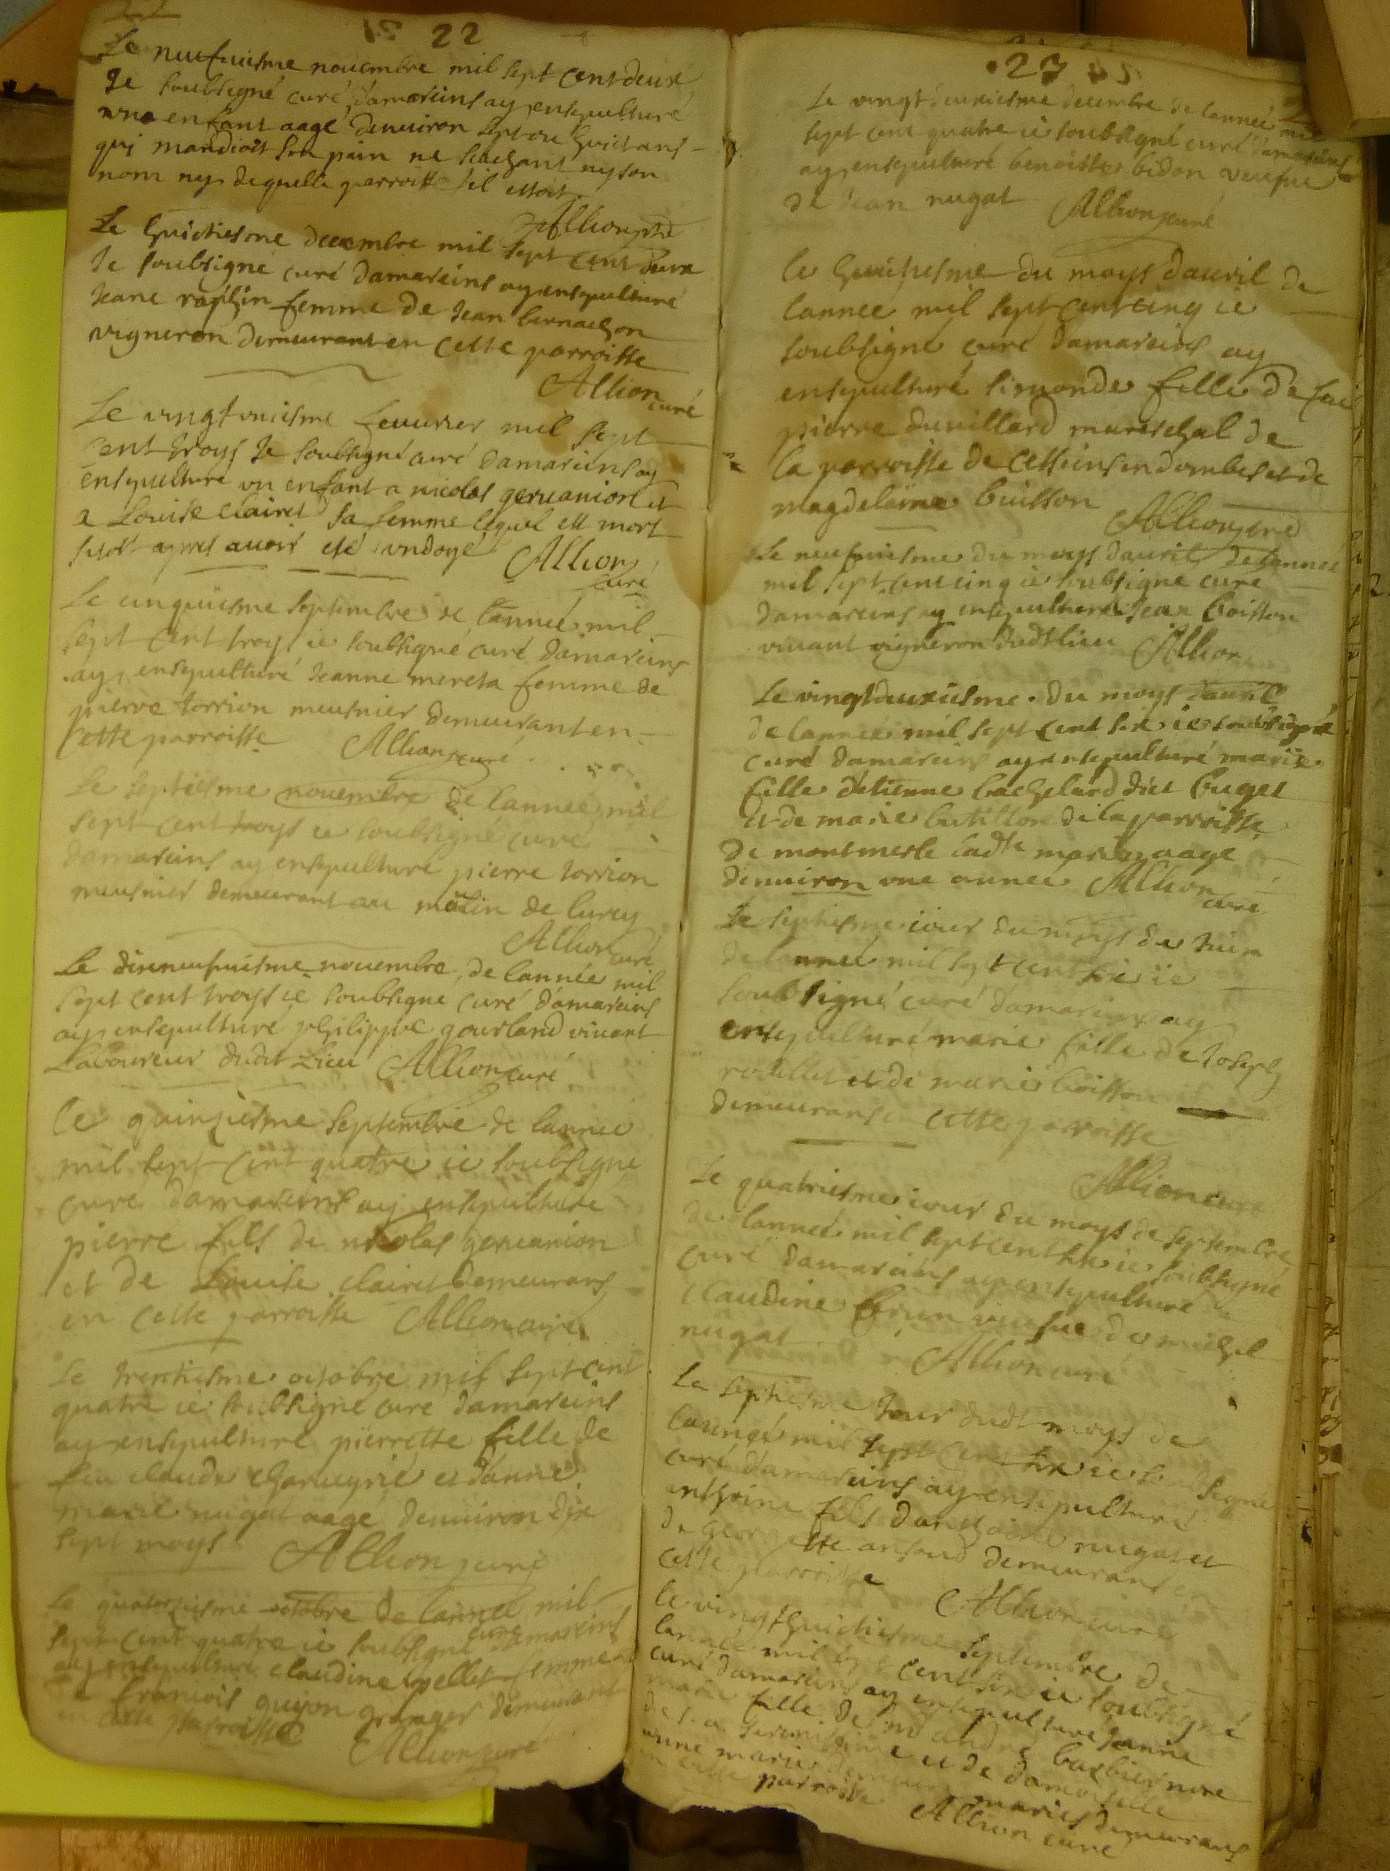 22
Le neufuiesme nouembre mil sept cent deux
Je soubsigné curé damareins ay ensepulturé
vne enfant aagé denuiron sept ou huict ans
qui mandioit son pain ne sachant ny son
nom ny de quelle parroisse il estoit
Allion
Le huictiesme decembre mil sept cent deux
Je soubsigné curé damareins ay ensepulturé
Jeane raphin femme de Jean
vigneron demeurant en cette parroisse
Allion curé
Le vingtuniesme feuurier mil sept
cent troys Je soubsigné curé damareins ay
ensepulturé vn enfant a nicolas geruanion et
a Louise clairet sa femme lequel est mort
apres auoir esté ondoyé Allion
curé
Le cinquiesme septembre de lannee mil
sept cent troys ie soubsigné curé damareins
ay ensepulturé Jeanne mereta femme de
pierre torrion meusnier demeurant en
cette parroisse Allion curé
Le septiesme nouembre de lannee mil
sept cent troys ie soubsigné curé
damareins ay ensepulturé pierre torrion
meusnier demeurant au molin de lurcy
Allion curé
Le dixneufuiesme nouembre de lannée mil
sept cent troys ie soubsigné curé damareins
ay ensepulturé philippe gourland viuant
Laboureur dudit Lieu Allion curé
Le quinziesme septembre de lannee
mil sept cent quatre ie soubsigné
curé damareins ay ensepulturé
pierre fils de nicolas geruanion
et de Louise clairet demeurans
en cette parroisse Allion curé
Le trentiesme octobre mil sept cent
quatre ie soubsigné curé damareins
ay ensepulturé pierrette fille de
feu claude et danne
marie nugat aagé denuiron dix
sept moys Allion curé
Le quatorziesme octobre de lannee mil
sept cent quatre ie soubsigné curé damareins
ay ensepulturé claudine pellet femme a
françois guyon granger demeurant
cette parroisse
Allion curé
23
Le vingt deuxiesme decembre de lannee mil
sept cent quatre ie soubsigné curé damareins
ay ensepulturé benoiste bidon veufue
de Jean nugat Allion curé
le huitiesme du moys dauril de
lannee mil sept cent cinq ie
soubsigné curé damareins ay
ensepulturé simonde fille de feu
pierre duuillard mareschal de
la parroisse de cesseins en dombes et de
magdelaine buisson
Allion curé
Le neufuiesme du moys dauril de lannee
mil sept cent cinq ie soubsigné curé
damareins ay ensepulturé Jean boisson
viuant vigneron dudt lieu Allion
Le vingtdeuxiesme du moys dauril
de lannee mil sept cent six ie soubsigné
curé damareins ay ensepulturé marie
fille detienne bachelard dict buget
et de marie butillon de la parroisse
de montmerle ladte marie aage
denuiron vne année Allion
curé
Le septiesme iour du moys de Juin
de lannee mil sept cent six ie
soubsigné curé damareins ay
ensepulturé marie fille de Joseph
et de marie boisson
demeurans cette parroisse
Allion curé
Le quatriesme iour du moys de septembre
de lannee mil sept cent six ie soubsigné
curé damareins ay ensepulturé
claudine brun veufue de michel
nugat
Allion curé
Le septiesme Jour dudt moys de
lannee mil sept cent six ie soubsigné
curé damareins ay ensepulturé
anthoine fils danthoine nugat et
de Georgette demeurans en
cette parroisse
Allion curé
le vingthuictiesme septembre de
lannee mil sept cent six ie soubsigné
curé damareins ay ensepulturé Jeanne
marie fille de andré barbier
et de damoiselle
anne marie maries demeurans
parroisse Allion curé